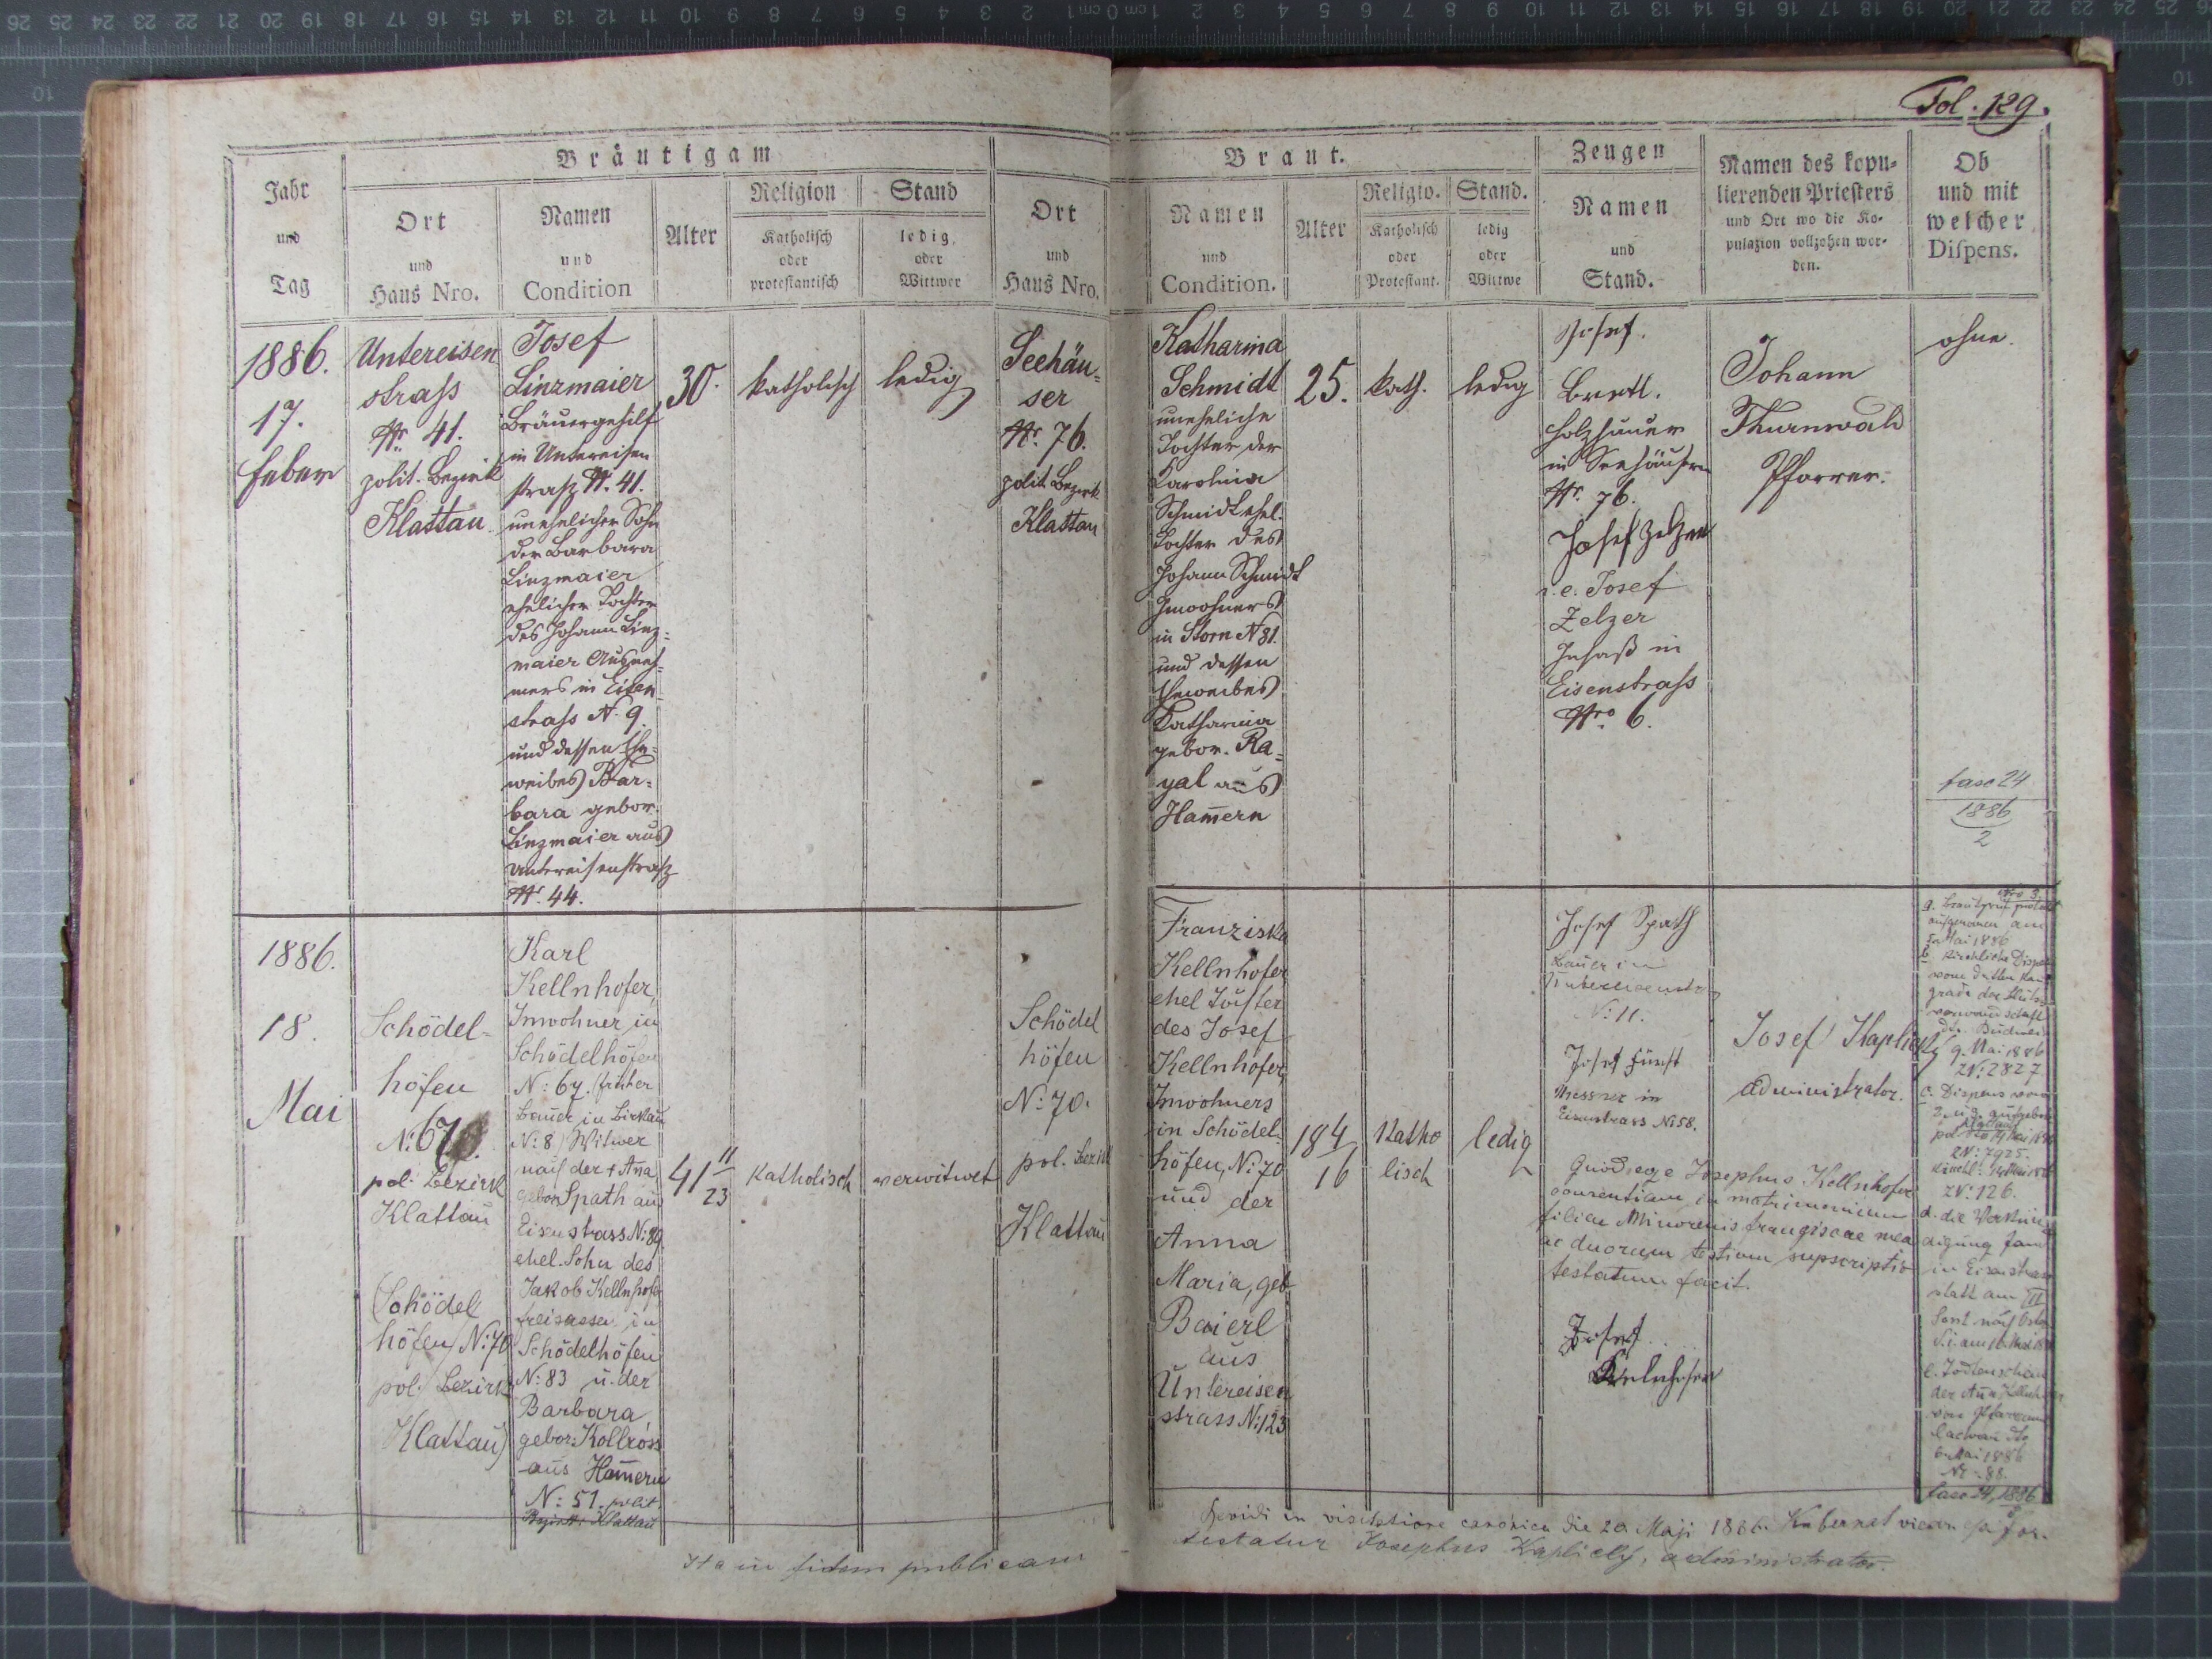 Fol. 129.
Bräutigam
Braut.
Zeugen
Jahr
und
Tag
Ort
und
Haus Nro.
Namen
und
Condition
Alter
Religion
Katholisch
oder
protestantisch
Stand
ledig,
oder
Wittwer
Ort
und
Haus Nro.
Namen
und
Condition.
Alter
Religio.
Katholisch
oder
Protestant.
Stand.
ledig
oder
Wittwe
Namen
und
Stand.
Namen des kopu-
lierenden Priesters
und Ort wo die Ko-
pulazion vollzohen wor-
den.
Ob
und mit
welcher
Dispens.
1886.
17.
Feber
Untereisen
strass
Nr. 41.
polit. Bezirk
Klattau
Josef
Linzmaier
Bräuergehilf
in Untereisen
strasz N. 41.
unehelicher Sohn
der Barbara
Linzmaier
ehelicher Tochter
des Johann Linz=
maier Ausneh=
mers in Eisen
strass N. 9.
und dessen Ehe=
weibes Bar=
bara gebor.
Linzmaier aus
Untereisenstrasz
Nr. 44.
30.
katholisch
ledig
Seehäu=
ser
Nr. 76.
polit. Bezirk
Klattau
Katharina
Schmidt
uneheliche
Tochter der
Karolina
Schmidt ehel.
Tochter des
Johann Schmidt
Inwohners
in Storn N 81.
und dessen
Eheweibes
Katharina
gebor. Ra=
yal aus
Ham̄ern
25.
kath.
ledig
Josef
Bretl.
Holzhauer
in Seehäusern
Nr. 76.
Josef Zelzer
i. e. Josef
Zelzer
Insaß in
Eisenstrass
Nro 6.
Johann
Thurnwald
Pfarrer.
ohne.
fasc 24
1886
2
1886.
18.
Mai
Schödel-
höfen
N: 67
pol. Bezirk
Klattau
(Schödel
höfen N: 70
pol. Bezirk
Klattau)
Karl
Kellnhofer,
Inwohner in
Schödelhöfen
N: 67. (früher
Bauer in Birkau
N: 8) Witwer
nach der + An̄a
gebor. Spath aus
Eisenstrass N: 89
ehel. Sohn des
Jakob Kellnhofer
Freisassen in
Schödelhöfen
N: 83 u. der
Barbara,
gebor. Kollross
aus Ham̄ern
N: 51. polit.
Bezirk: Klattau
41 11/23
katholisch
verwitwet
Schödel
höfen
N: 70.
pol. Bezirk
Klattau
Franziska
Kellnhofer
ehel Tochter
des Josef
Kellnhofer,
Inwohners
in Schödel-
höfen, N: 70
und der
Anna
Maria, geb
Baierl
aus
Untereisen
strass N: 123
18 4/16
Katho
lisch
ledig
Josef Spath
Bauer in
Untereisenstr
N: 11.
Josef Fürst
Messner in
Eisenstrass N: 58.
Quod ego Josephus Kellnhofer
consentiam in matrimonium
filiae Minorenis franziscae mea
ac duorum testium supscriptio
testatum facit.
Josef
Kelnhofer
Josef Kaplicky
administrator.
Nro 3.
aufgenommen am
Mai 1886
b. kirchliche Dispens
vom dritten
grade der
9. Mai 1886
ZN: 2827
c. Dispens von
2. u. 3. aufgebot
ZN: 7925.
ZN: 126.
d. die Verkün
digung fand
in Eisenstrass
statt am III
e. Todtenschein
der An̄a Kellnhofer
6. Mai 1886
N: 88.
fasc 24, 1886
Revidi in visitatione canonica die 20 Maji 1886.
Ita in fidem publicam
testatur Josephus Kaplický, administrator.